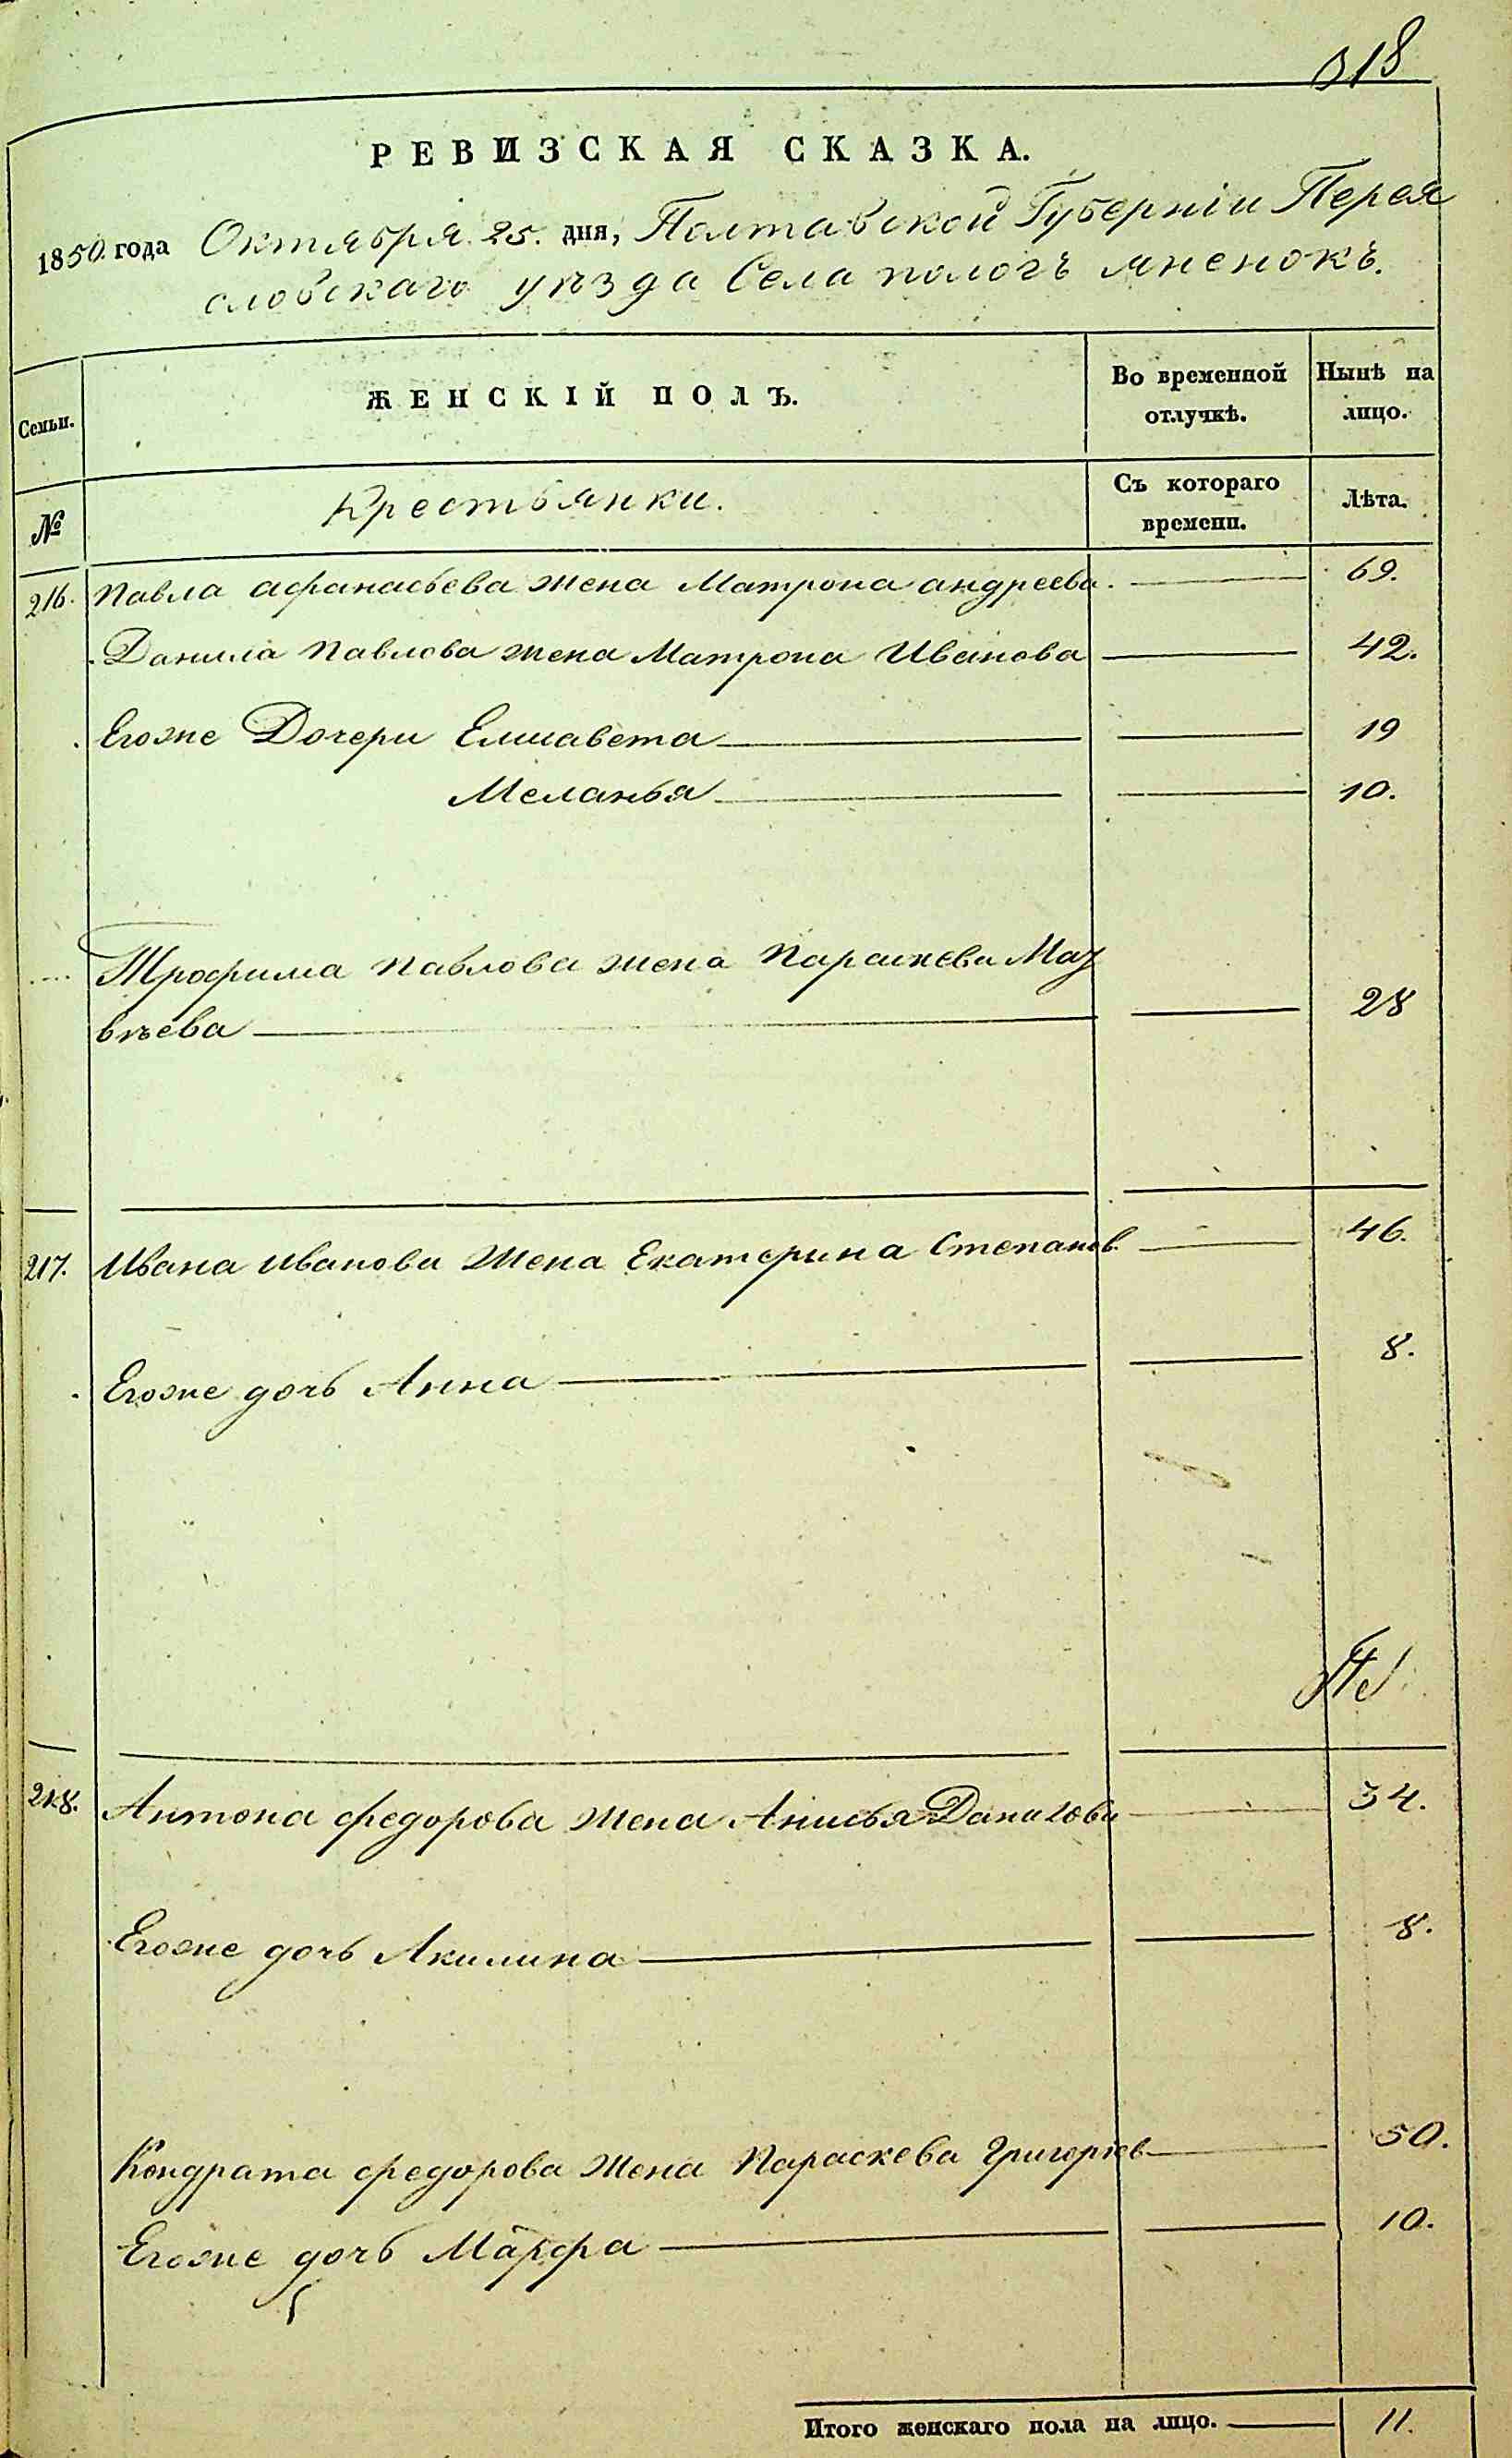 318
РЕВИЗСКАЯ СКАЗКА.
1850. года Октября 25. дня, Полтавской Губерніи Перея
словскаго уѣзда Села пологъ яненокъ.
Семьи. ЖЕНСКІЙ ПОЛЪ. Во временной отлучкѣ. Нынѣ на лицо.
№ Крестьянки. Съ котораго времени. Лѣта.
216. Павла афанасьева жена Матрона андреева. 69.
Данила Павлова жена Матрона Иванова 42.
Егоже Дочери Елисавета 19
Меланья 10.
Трофима Павлова жена Параскева
вѣева 28
217. Ивана Иванова Жена Екатерина Степанов. 46.
Егоже дочь Анна 8.
218. Антона федорова Жена Анисья Данилова 34.
Егоже дочь Акилина 8.
Кондрата федорова Жена Параскева Григорьев 50.
Егоже дочь Марфа 10.
Итого женскаго пола на лицо. 11.